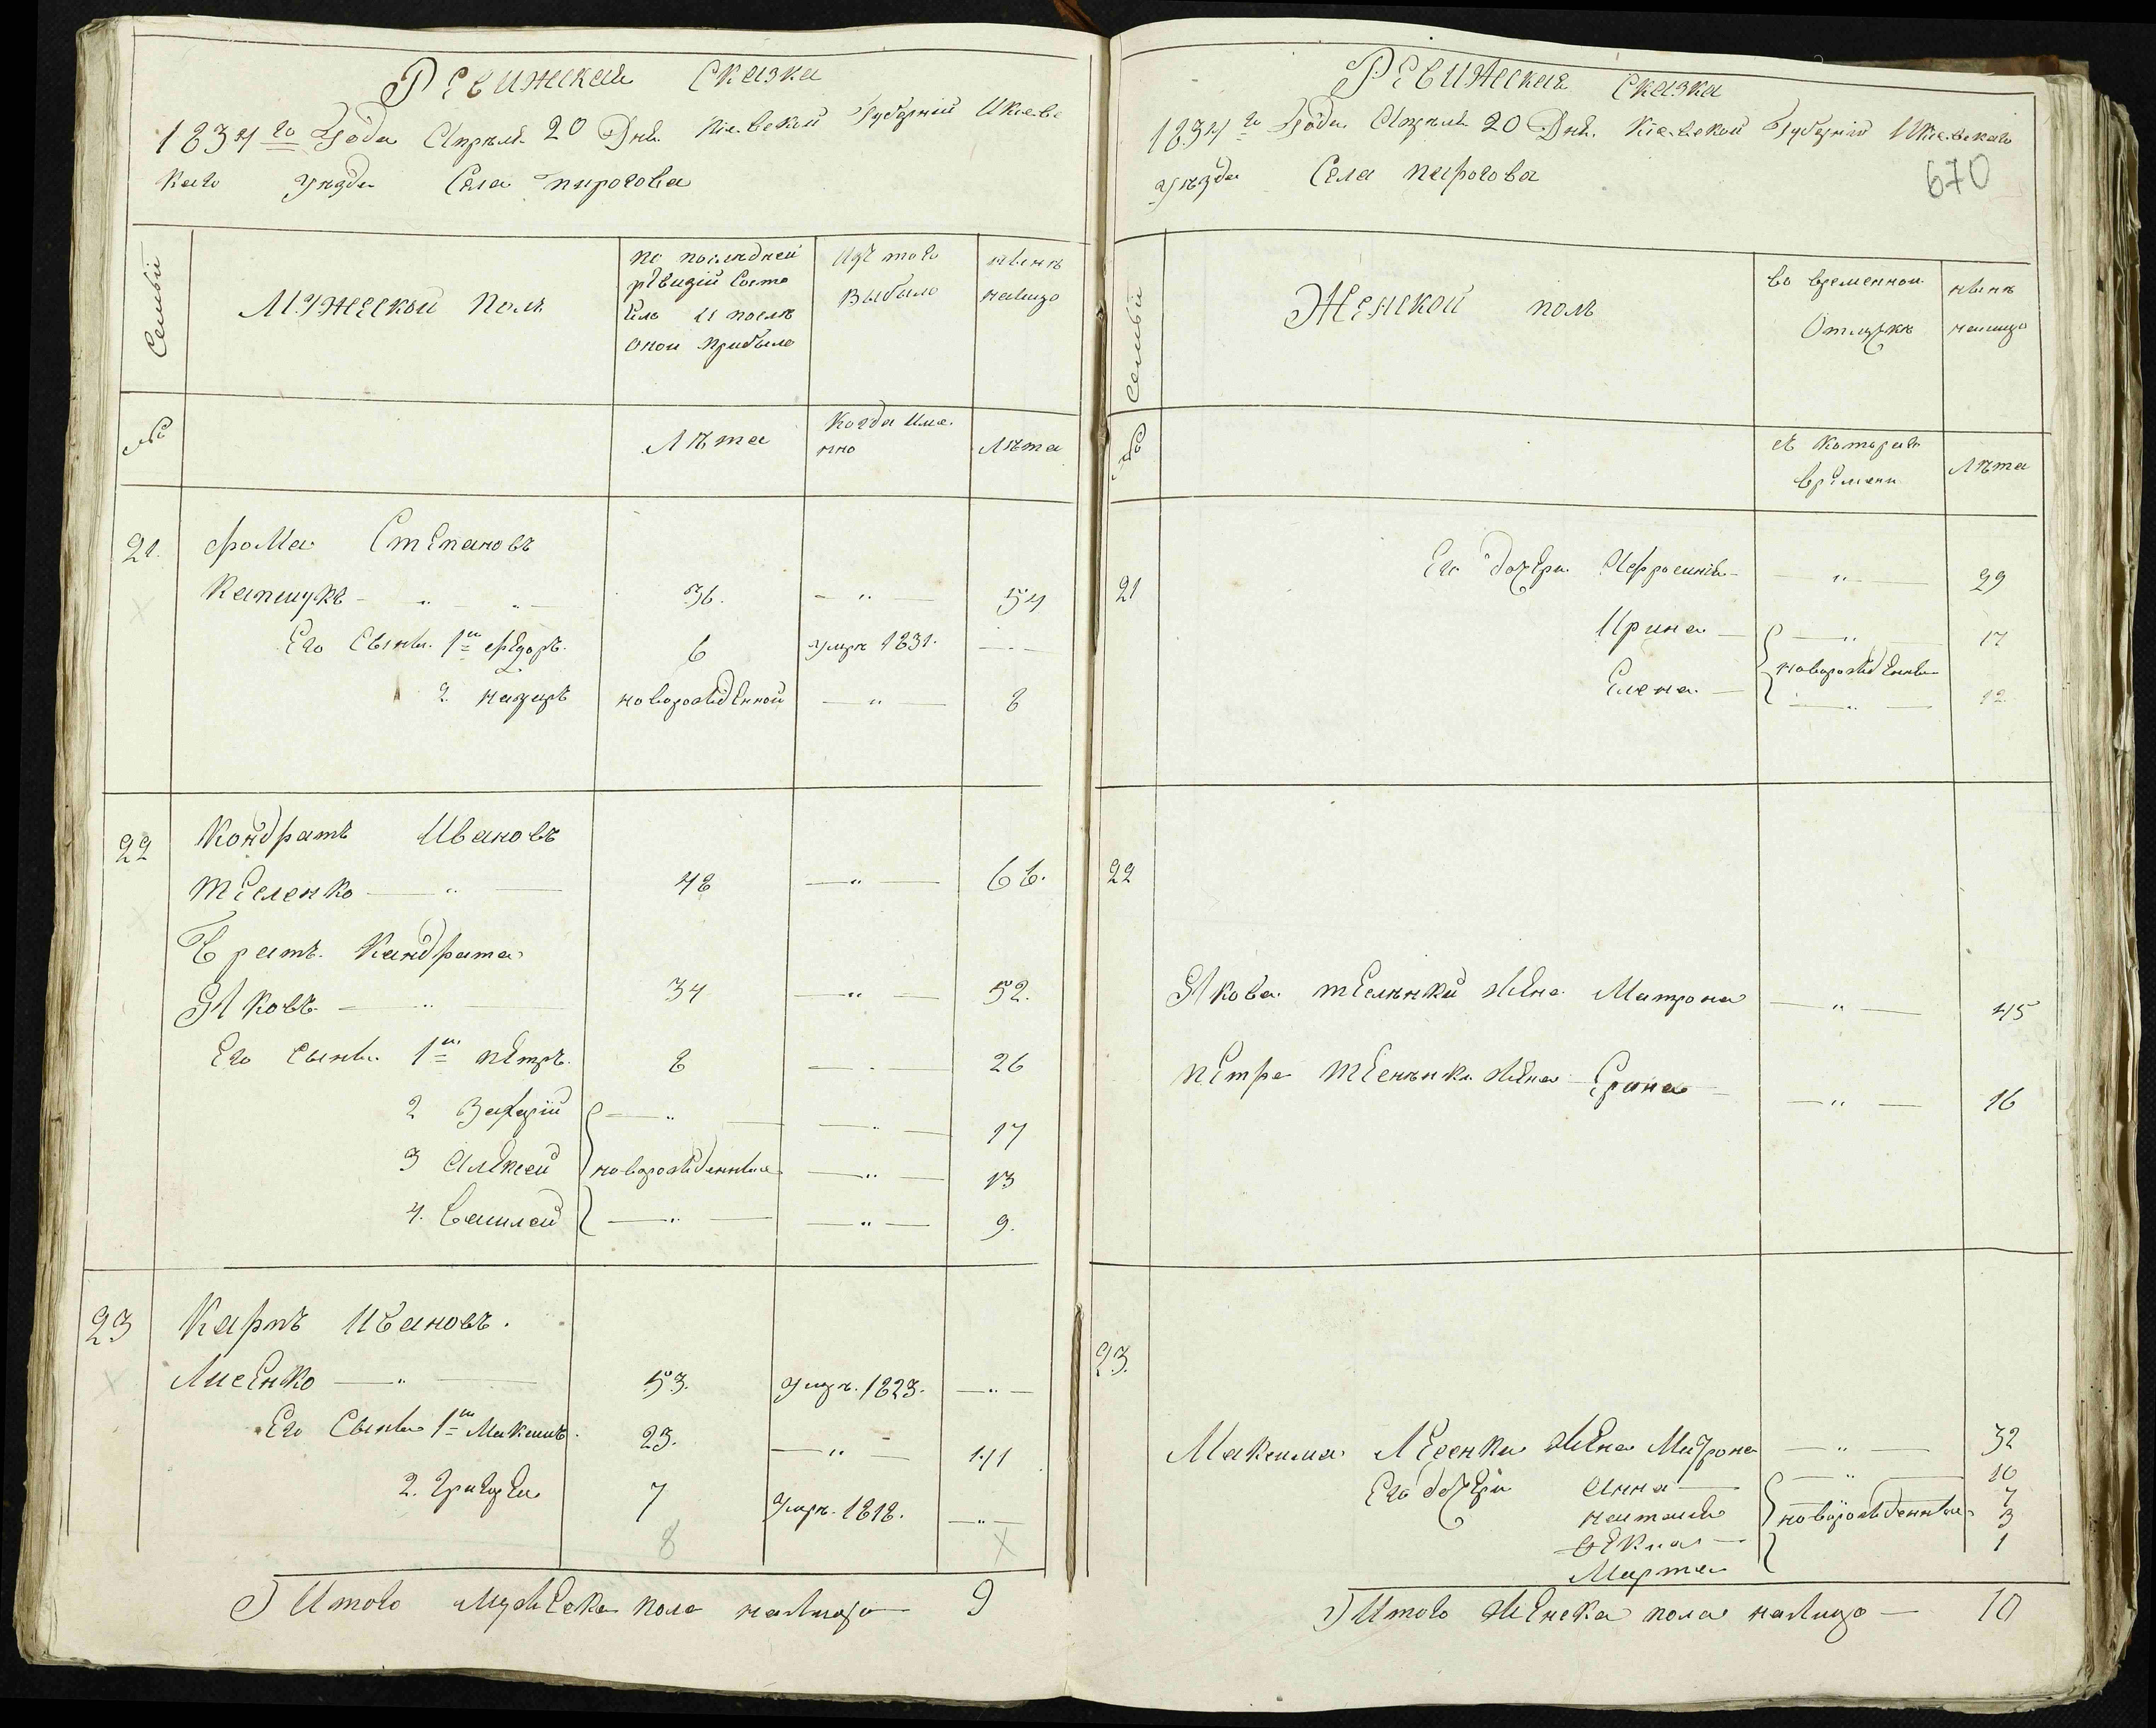 Ревижская Сказка
1834 го Года Апреля 20 Дня Киевской Губерний И Киевс
каго Уезда Села пирогова
Семьи
Мужескои полъ
по последней
ревизии Состо
яло и после
оной прибыло
изъ того
выбыло
ныне
налицо
№
Лѣта
когда име
нно
Лѣта
21. Фома Степановъ
Капшукъ 36. 54
Его Сынъ. 1й Федоръ. 6 умре 1831.
2. назаръ новорожденной 8
22 Кондратъ Ивановъ
Теленко 48 66.
Братъ Кандрата
Яковъ 34 52.
Его Сынъ 1й петръ. 8 26
2 Захарий 17
3 Алексей новорожденные 13
4. Василей 9.
23 Карпъ Ивановъ.
Лисенко 53. умре. 1823.
Его Сынъ 1й Максимъ. 23. 41
2. Григорей 7 Умре. 1818.
8
Итого мужеска пола налицо 9
Ревижская Сказка
1834 го Года Апреля 20 Дня Киевской Губерний И Киевскаго
уезда Села пирогова
670
Семьи
Женской полъ
во временной
Отлучке
ныне
налицо
№
съ котораго
времени
Лѣта
21 Его дочери Ефросиния 29
Ирина 17
новорожденные
Елена 12
22
Якова теленки жена Матрона 45
петра теленка жена Ерина 16
23.
Максима Лесенки жена Матрона 32
Его дочери Анна 10
наталия новорожденные 7
Фекла 3
Марта 1
Итого женска пола налицо 10